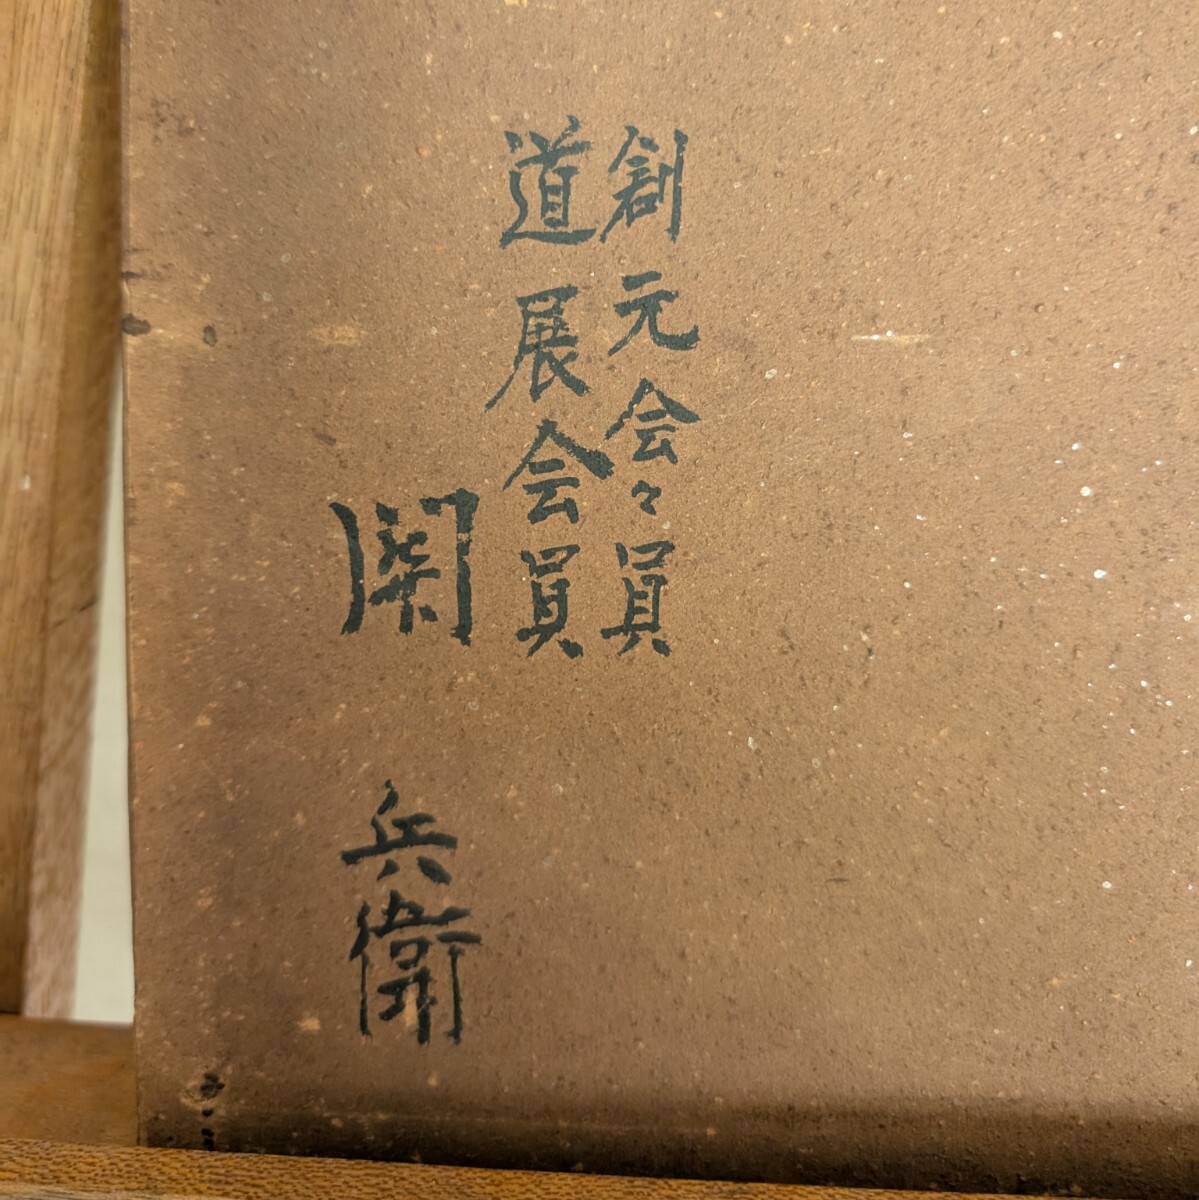 創元会々員
道展会員
関 兵衛